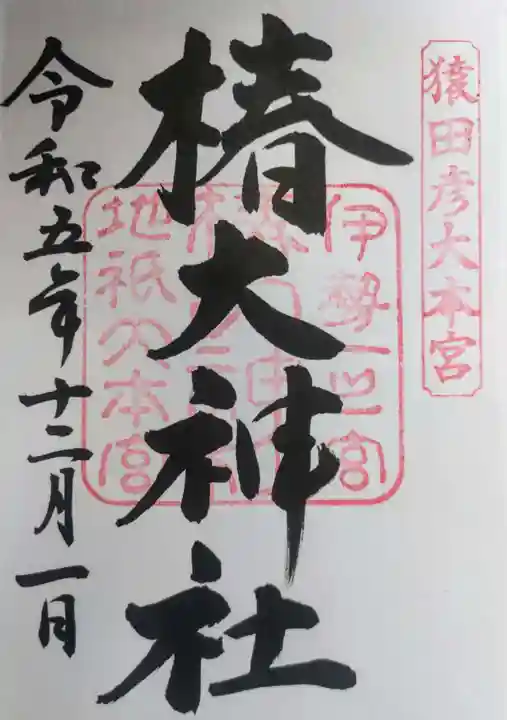 猿田彦大本宮
伊勢一之宮
椿大神社
地祇大本宮
椿大神社
令和五年十二月一日